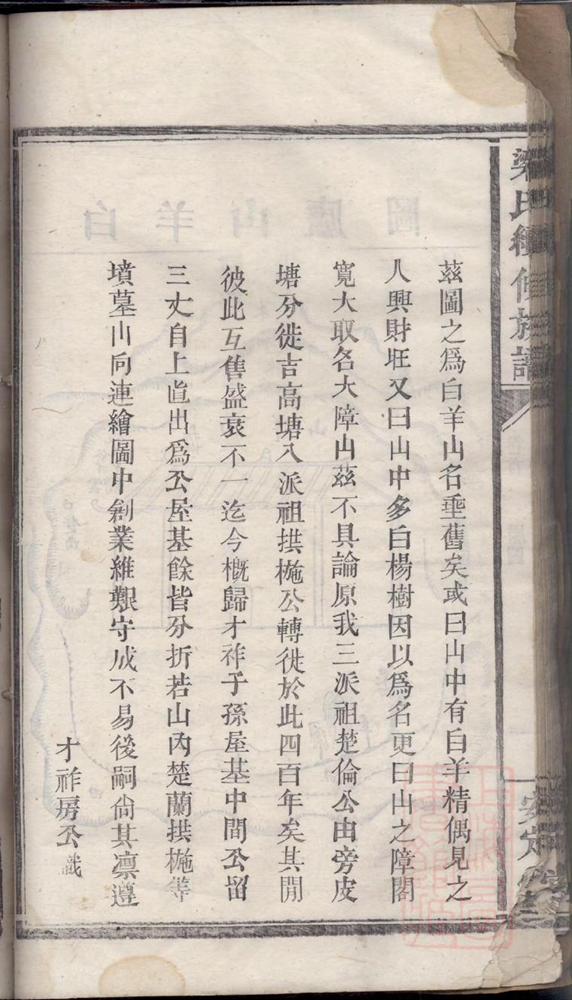 梁氏續修族譜
茲圖之爲白羊山名垂舊矣或曰山中有白羊精偶見之
人興財旺又曰山中多白楊樹因以爲名更曰山之障闊
寬大取名大障山茲不具論原我三派祖楚倫公由旁皮
塘分徙吉高塘入派祖拱樾公轉徙於此四百年矣其間
彼此互售盛衰不一迄今概歸才祚子孫屋基中間公留
三丈自上直出爲公屋基餘皆分折若山內楚蘭拱樾等
墳墓山向連繪圖中創業維艱守成不易後嗣尙其凛遵
才祚房公識
安定
白羊山廬圖